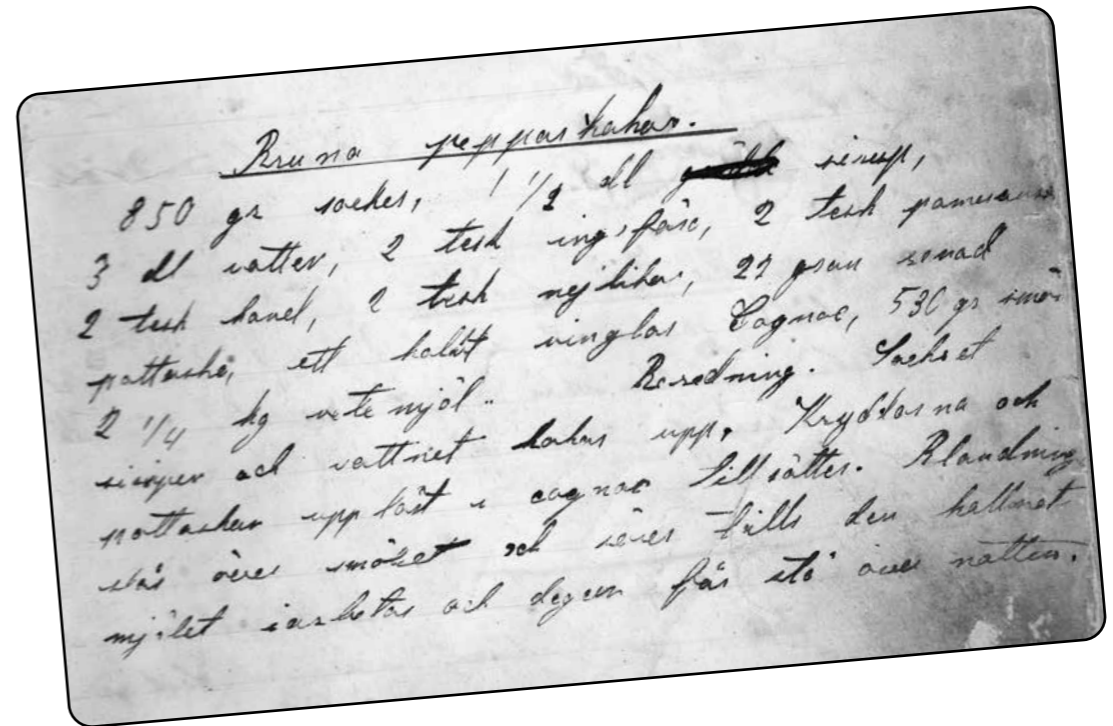 Bruna pepparkakor.
850 gr socker, 1 1/2 dl sirap,
3 dl vatten, 2 tesk ingefära, 2 tesk pomerans
2 tesk kanel, 2 tesk nejlikor, 27 gram renad
pottaska, ett halvt vinglas Cognac, 530 gr smör
2 1/4 kg vetemjöl. Beredning. Sockret
sirapen och vattnet kokas upp, Kryddorna och
pottaskan upplöst i cognac tillsättes. Blandning
slås över smöret och röres tills den kallnat
mjölet inarbetas och degen får stå över natten.